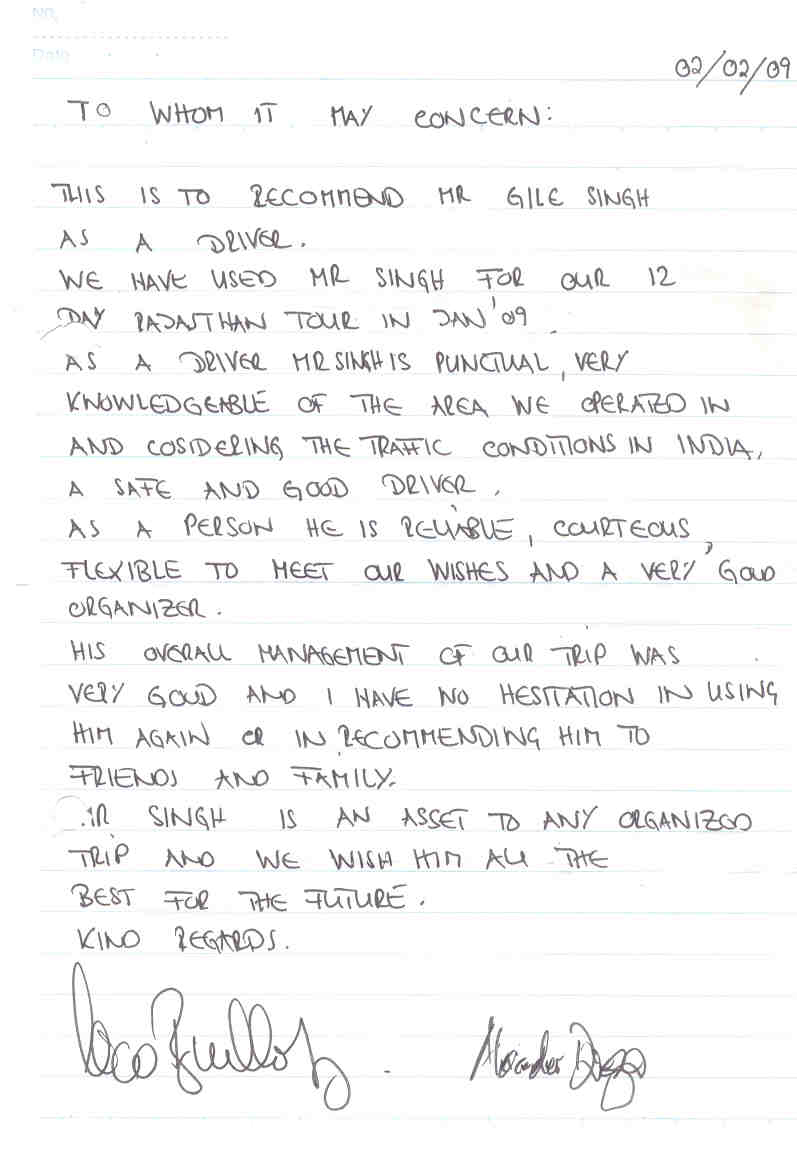 No.
Date
02/02/09
TO WHOM IT MAY CONCERN:
THIS IS TO RECOMMEND MR GILE SINGH
AS A DRIVER.
WE HAVE USED MR SINGH FOR OUR 12
DAY RAJASTHAN TOUR IN JAN'09
AS A DRIVER MR SINGH IS PUNCTUAL, VERY
KNOWLEDGEABLE OF THE AREA WE OPERATED IN
AND COSIDERING THE TRAFFIC CONDITIONS IN INDIA,
A SAFE AND GOOD DRIVER.
AS A PERSON HE IS RELIABLE, COURTEOUS,
FLEXIBLE TO MEET OUR WISHES AND A VERY GOOD
ORGANIZER.
HIS OVERALL MANAGEMENT OF OUR TRIP WAS
VERY GOOD AND I HAVE NO HESITATION IN USING
HIM AGAIN OR IN RECOMMENDING HIM TO
FRIENDS AND FAMILY.
MR SINGH IS AN ASSET TO ANY ORGANIZED
TRIP AND WE WISH HIM ALL THE
BEST FOR THE FUTURE.
KIND REGARDS.